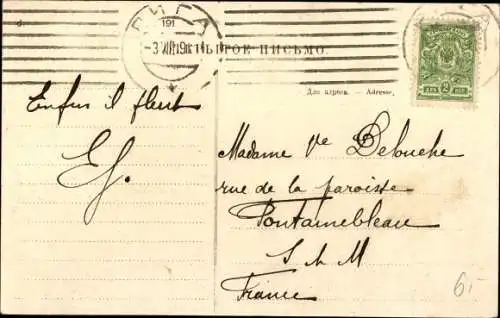 РИГА
191
-3 VII 191
ОТКРЫТОЕ ПИСЬМО.
Для адреса. — Adresse.
Enfin il pleut
Madame Vve Delouche
rue de la paroisse
Fontainebleau
S & M
France
6-